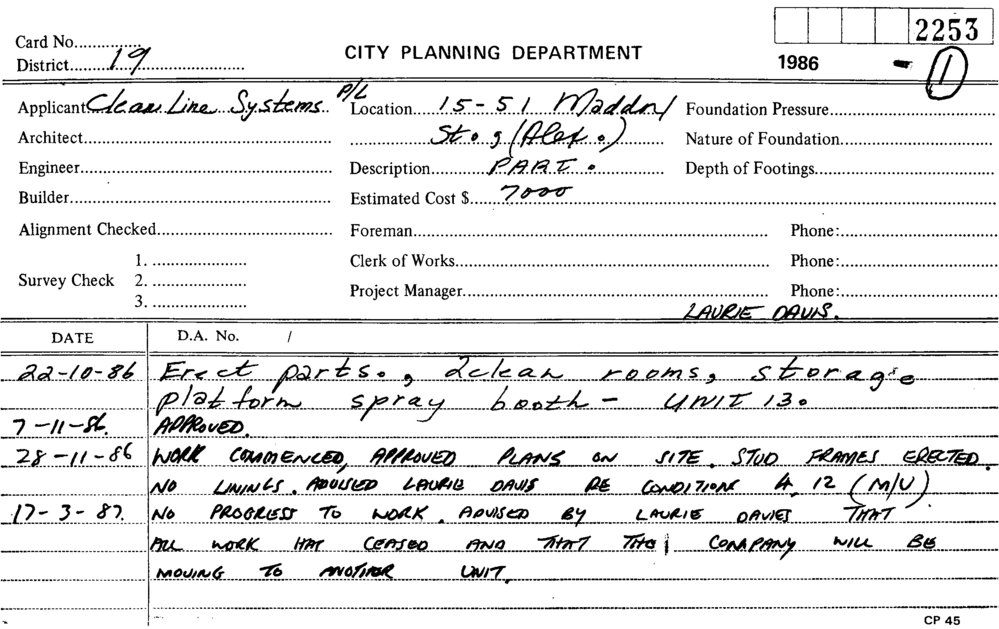 2253
Card No.
District 19
CITY PLANNING DEPARTMENT
1986 - 1
Applicant Clean Line Systems P/L Location 15-51 Maddox Foundation Pressure
Architect St., (Alex.) Nature of Foundation
Engineer Description PART. Depth of Footings
Builder Estimated Cost $ 7000
Alignment Checked Foreman Phone:
1. Clerk of Works Phone:
Survey Check 2.
3. Project Manager Phone:
LAURIE DAVIS.
DATE D.A. No. /
22-10-86 Erect parts., 2 clean rooms, storage
platform spray booth - UNIT 13.
7-11-86. APPROVED.
28-11-86 WORK COMMENCED, APPROVED PLANS ON SITE. STUD FRAMES ERECTED.
NO LININGS. ADVISED LAURIE DAVIS RE CONDITION 4, 12 (M/U)
17-3-87. NO PROGRESS TO WORK. ADVISED BY LAURIE DAVIES THAT
ALL WORK HAS CEASED AND THAT THE COMPANY WILL BE
MOVING TO ANOTHER UNIT.
CP 45